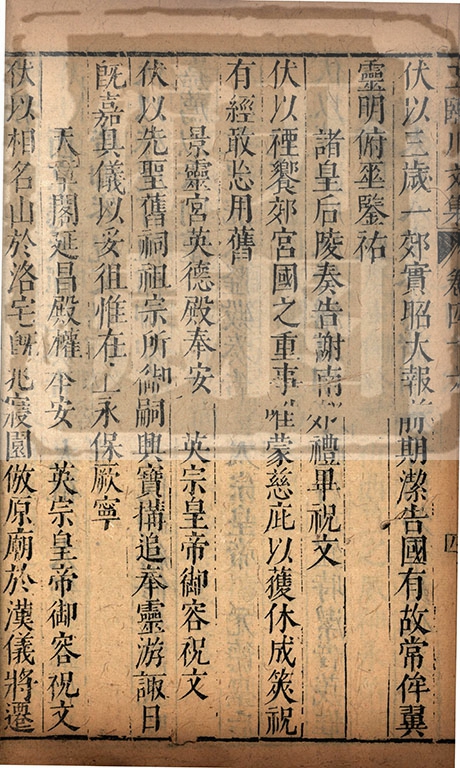 王臨川文集 卷四十六 四
伏以三歲一郊實昭大報前期潔告國有故常侔翼
靈明俯垂鑒祐
諸皇后陵奏告謝南郊禮畢祝文
伏以禋饗郊宮國之重事唯蒙慈庇以獲休成筴祝
有經敢忘用舊
景靈宮英德殿奉安 英宗皇帝御容祝文
伏以先聖舊祠祖宗所御嗣興寶構追奉靈游諏日
旣嘉具儀以妥徂惟在上永保厥寧
天章閣延昌殿權奉安 英宗皇帝御容祝文
伏以相名山於洛宅旣兆寢園倣原廟於漢儀將遷